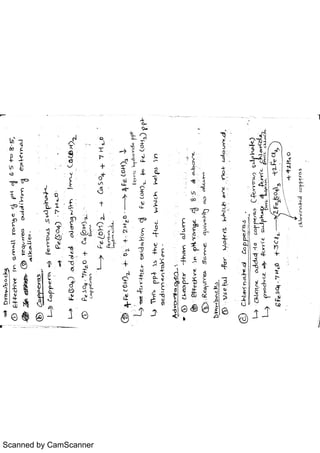 → Drawbacks
① Effective in a small range of pH of 6.5 to 8.5.
② requires addition of external
alkalies.
ⓑ Copperas
↳ Copperas → ferrous sulphate
→ FeSO4 7H2O.
↳ FeSO4 added alongwith lime Ca(OH)2
① FeSO4 7H2O + Ca(OH)2
↳ Fe(OH)2 + CaSO4 + 7H2O
ferrous
② 4Fe(OH)2 + O2 + 2H2O → 4Fe(OH)3 ↓
ferric hydroxide ppt
↳ further oxidation of Fe(OH)2 to Fe(OH)3 ppt
↳ This ppt is the floc which helps in
sedimentation.
Advantages:
① Cheaper than alum
② Effective in pH range of 8.5 & above.
③ Requires Same quantity as alum
Drawbacks
① Useful for waters which are not coloured.
ⓒ Chlorinated Copperas.
↳ chlorine added to copperas (ferrous sulphate)
↳ produce → ferric sulphate & ferric chloride
6FeSO4 7H2O + 3Cl2 → 2Fe2(SO4)3 + 2FeCl3
+ 42H2O
chlorinated copperas
Scanned by CamScanner